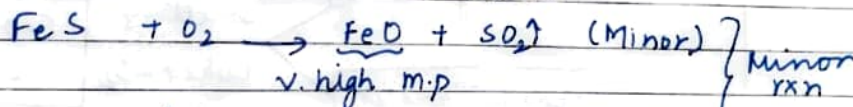 FeS + O₂ → FeO + SO₂↑ (Minor) } Minor
v. high m.p rxn